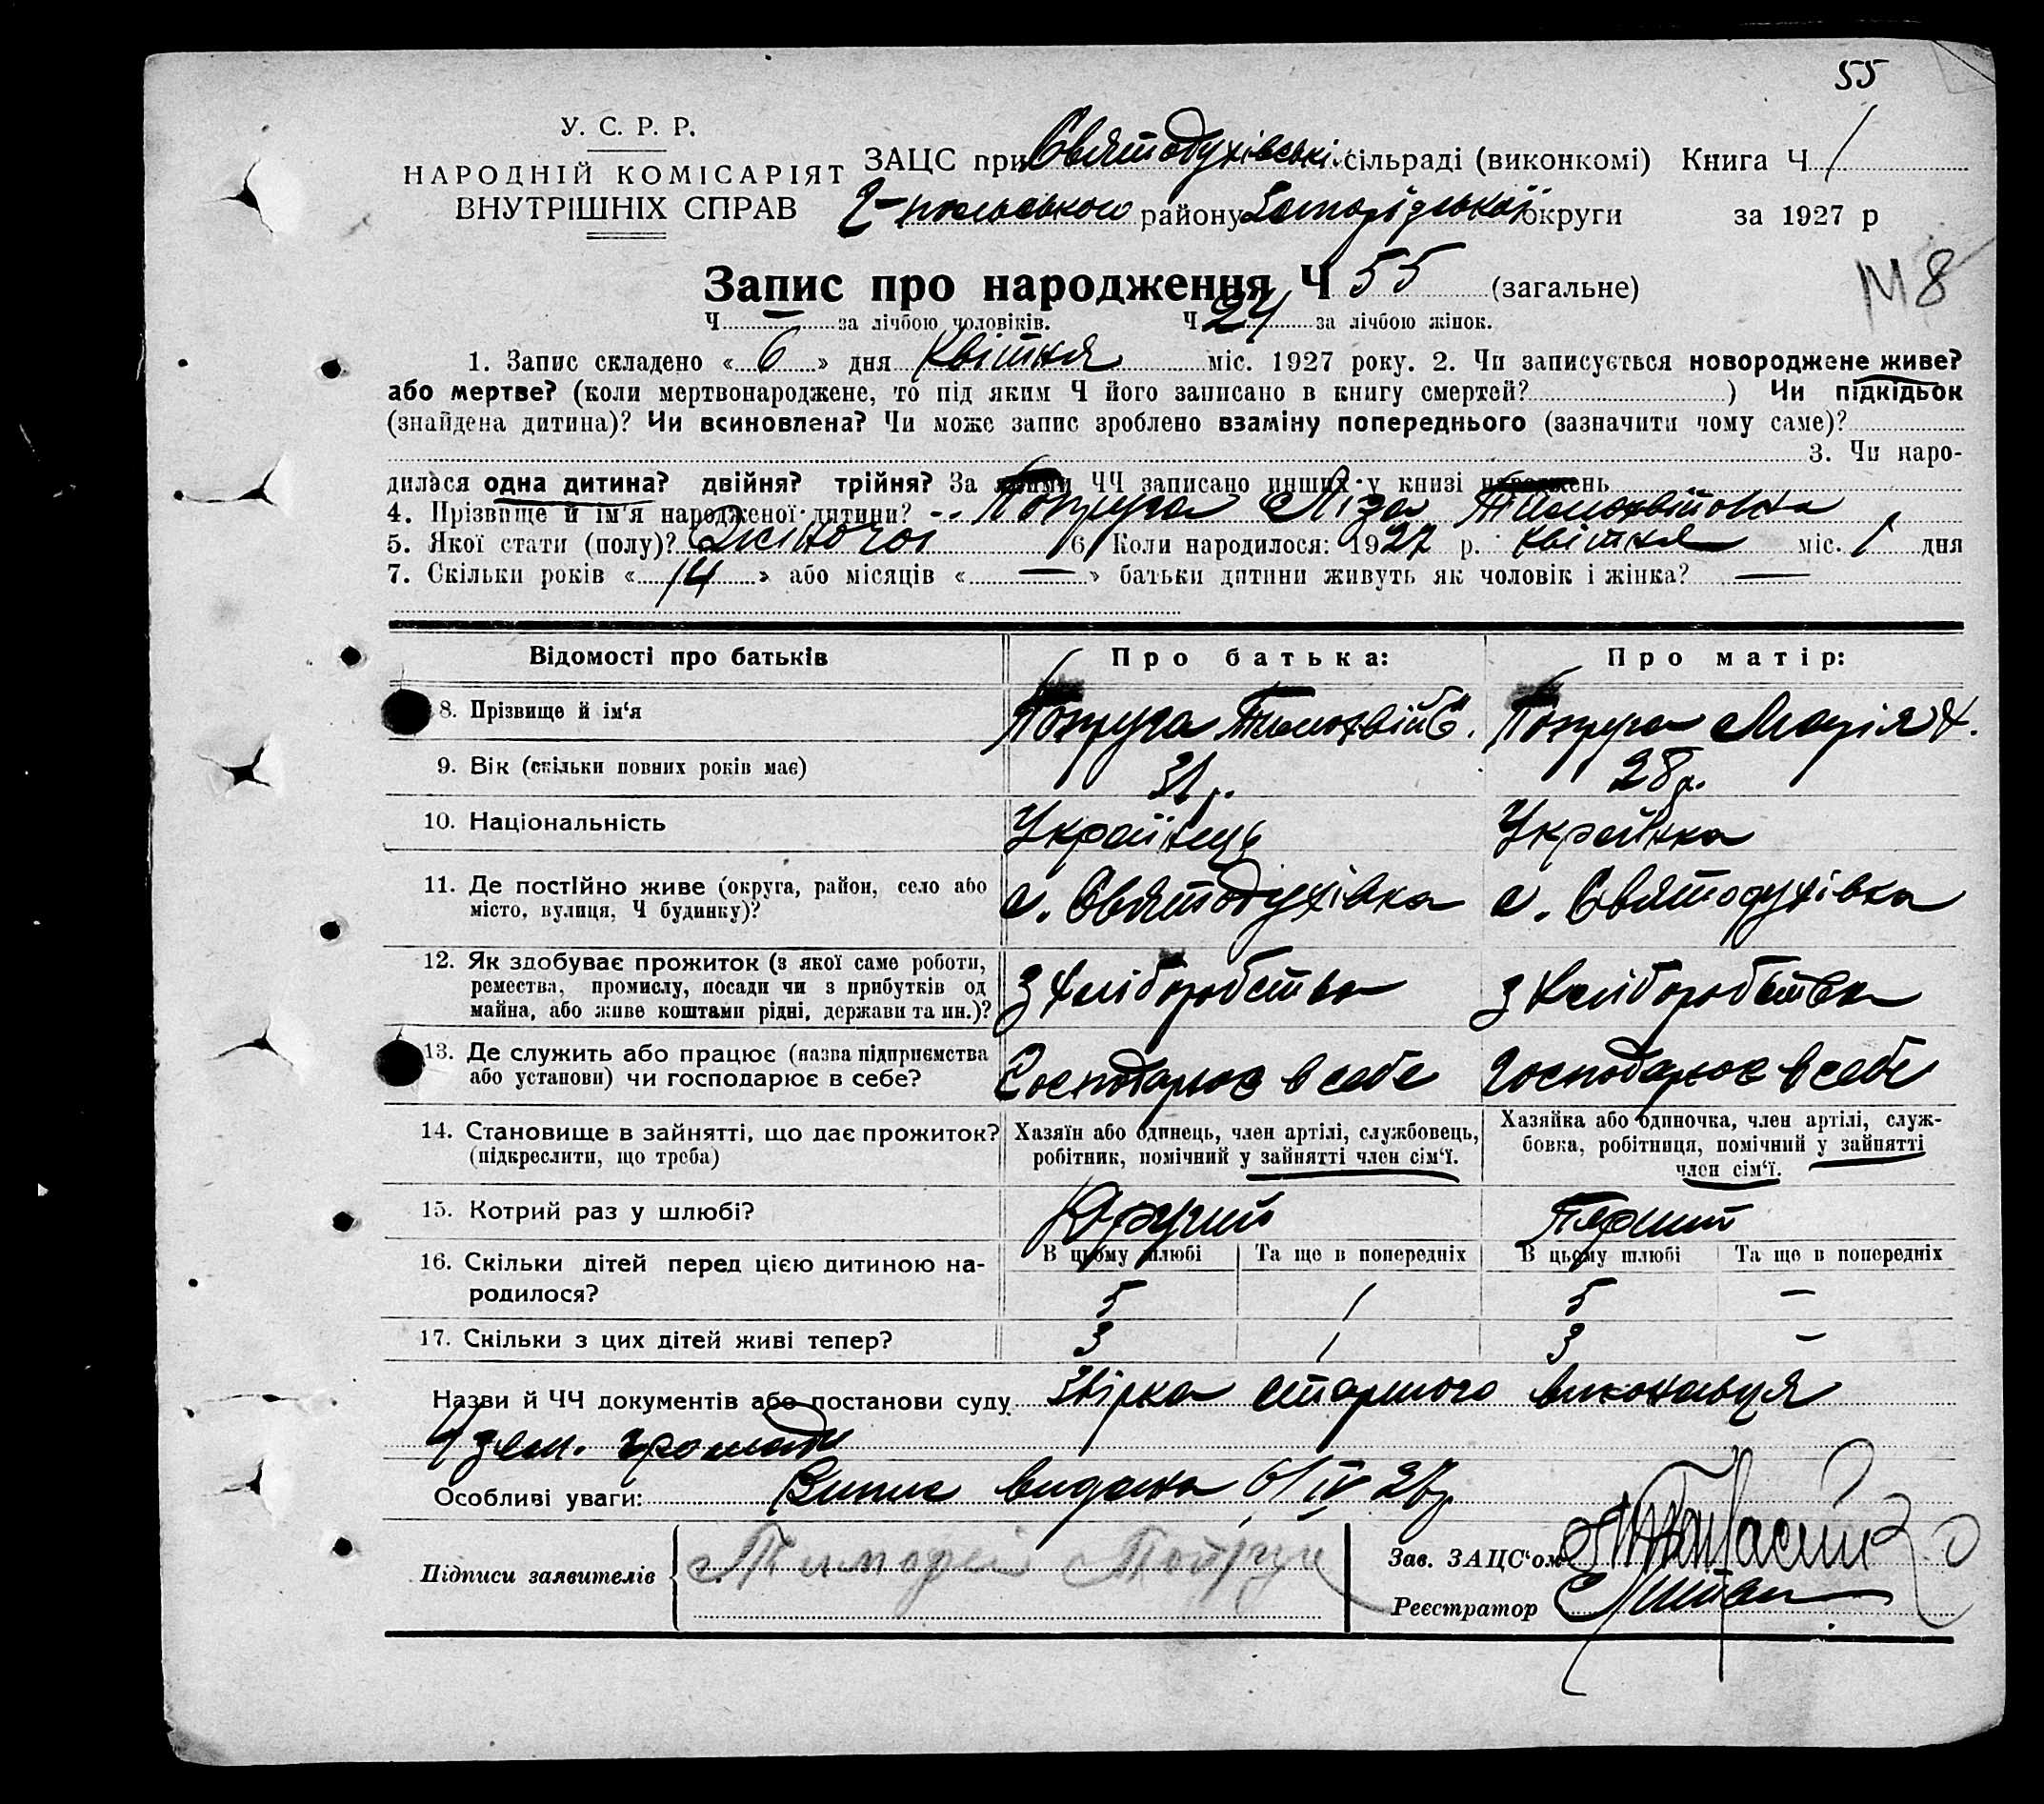 55
У. С. Р. Р.
НАРОДНІЙ КОМІСАРІЯТ
ВНУТРІШНІХ СПРАВ
ЗАЦС при Святодухівські сільраді (виконкомі) Книга Ч 1
Г-польського району Запорізської округи за 1927 р
М 8
Запис про народження Ч 55 (загальне)
Ч — за лічбою чоловіків. Ч 24 за лічбою жінок.
1. Запис складено « 6 » дня Квітня міс. 1927 року. 2. Чи записується новороджене живе?
або мертве? (коли мертвонароджене, то під яким Ч його записано в книгу смертей? ) Чи підкідьок
(знайдена дитина)? Чи всиновлена? Чи може запис зроблено взаміну попереднього (зазначити чому саме)?
3. Чи наро-
дилася одна дитина? двійня? трійня? За якими ЧЧ записано инших у книзі народжень
4. Прізвище й ім'я народженої дитини? Попруга Ліза Тимохвійовна
5. Якої стати (полу)? Жіночої 6. Коли народилося: 1927 р. квітня міс. 1 дня
7. Скільки років « 14 » або місяців « — » батьки дитини живуть як чоловік і жінка? —
Відомості про батьків Про батька: Про матір:
8. Прізвище й ім'я Попруга Тимохвій Є. Попруга Марія Х.
9. Вік (скільки повних років має) 31 р. 28 р.
10. Національність Українець Українка
11. Де постійно живе (округа, район, село або
місто, вулиця, Ч будинку)? с. Святодухівка с. Святодухівка
12. Як здобуває прожиток (з якої саме роботи,
ремества, промислу, посади чи з прибутків од
майна, або живе коштами рідні, держави та ин.)? З Хліборобства З Хліборобства
13. Де служить або працює (назва підприємства
або установи) чи господарює в себе? Господарює в себе Господарює в себе
14. Становище в зайнятті, що дає прожиток?
(підкреслити, що треба)
Хазяїн або одинець, член артілі, службовець,
робітник, помічний у зайнятті член сім'ї.
Хазяйка або одиночка, член артілі, служ-
бовка, робітниця, помічний у зайнятті
член сім'ї.
15. Котрий раз у шлюбі? Другий Перший
В цьому шлюбі Та ще в попередніх В цьому шлюбі Та ще в попередніх
16. Скільки дітей перед цією дитиною на-
родилося? 5 1 5 —
17. Скільки з цих дітей живі тепер? 3 1 3 —
Назви й ЧЧ документів або постанови суду Звірка старшого виконавця
4 зем. громади
Особливі уваги: Випис видана 6/IV 27р.
Підписи заявителів Тимофей Попруга
Зав. ЗАЦС'ом
Реєстратор